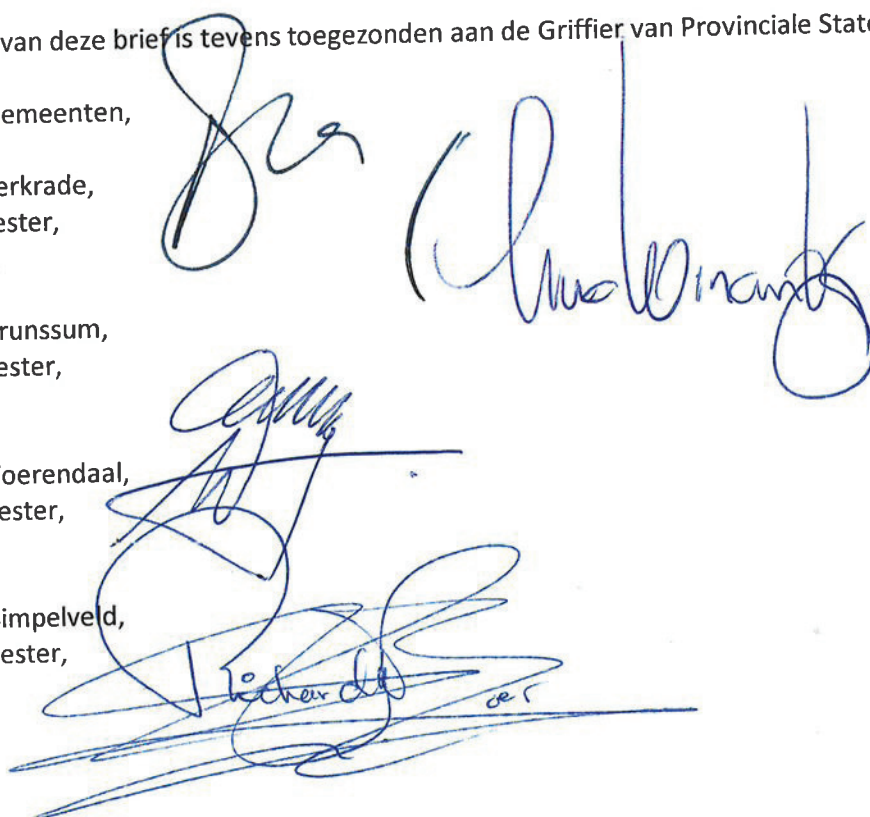 van deze brief is tevens toegezonden aan de Griffier van Provinciale State
emeenten,
erkrade,
ester,
runssum,
ester,
oerendaal,
ester,
impelveld,
ester,
Richard